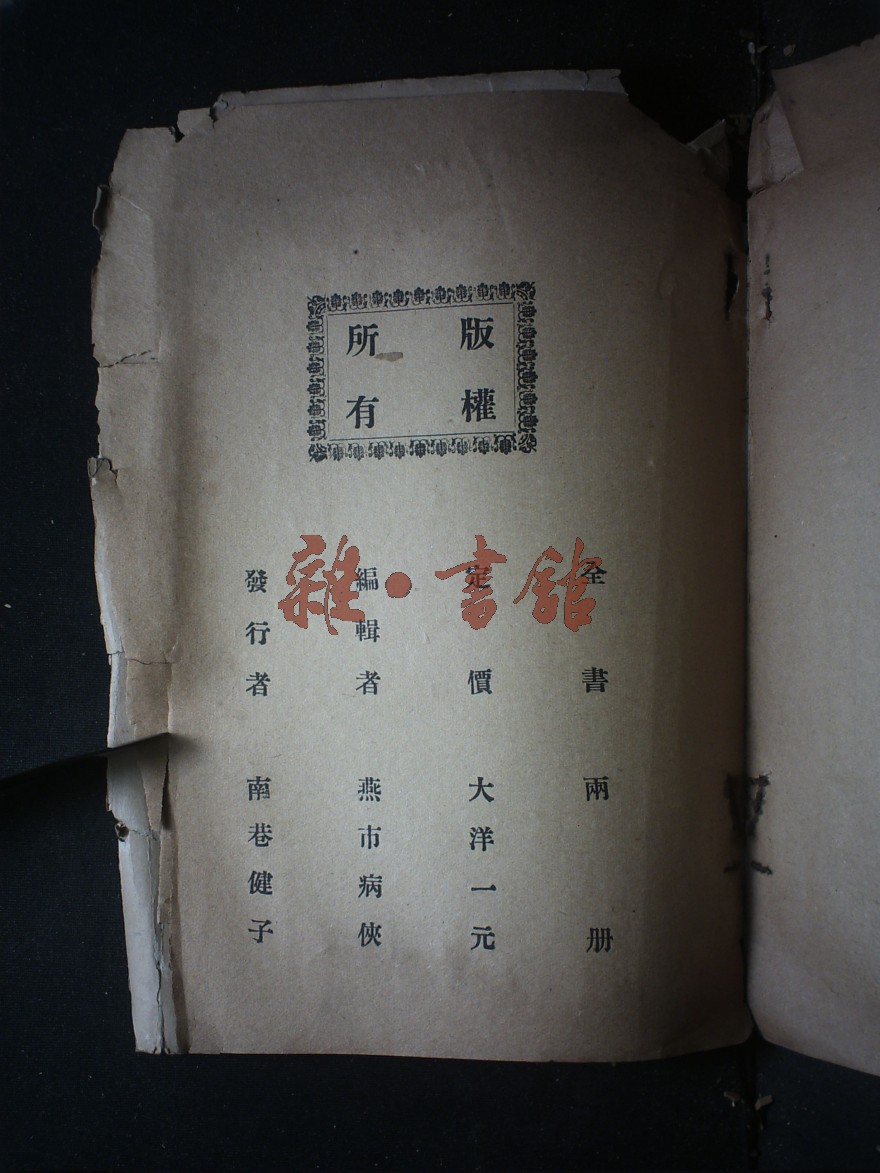 版權
所有
全書兩册
定價大洋一元
編輯者燕市病俠
發行者南巷健子
雜·書館